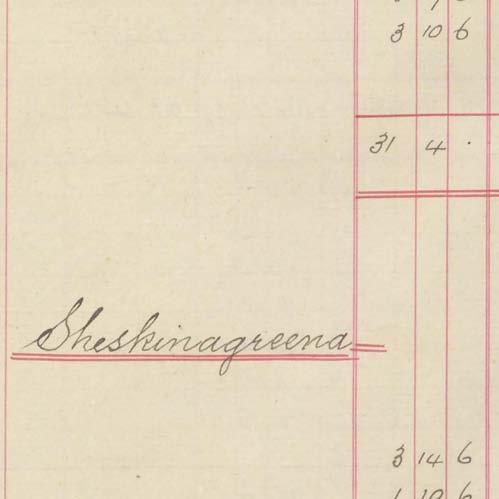 3 10 6
31 4 .
Sheskinagreena
3 14 6
1 10 6